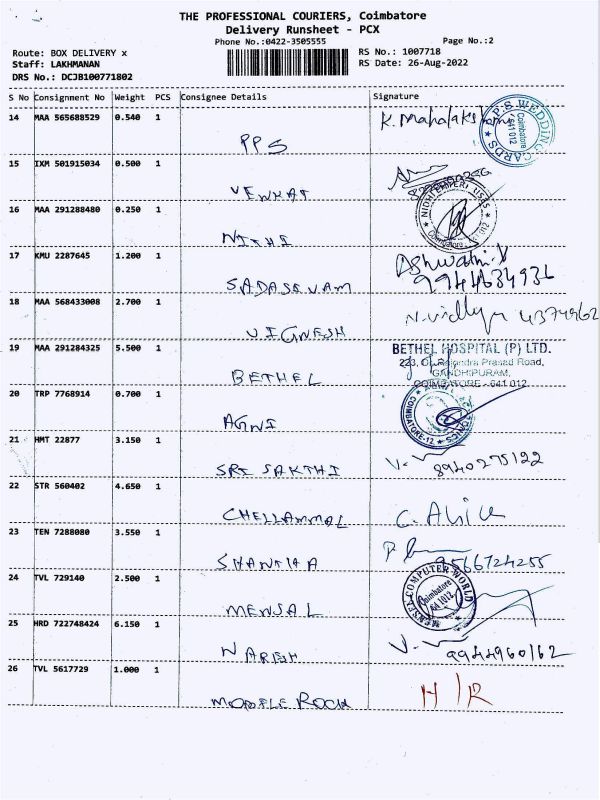 THE PROFESSIONAL COURIERS, Coimbatore
Delivery Runsheet - PCX
Phone No.:0422-3505555 Page No.:2
Route: BOX DELIVERY x RS No.: 1007718
Staff: LAKHMANAN RS Date: 26-Aug-2022
DRS No.: DCJB100771802
S No Consignment No Weight PCS Consignee Details Signature
14 MAA 565688529 0.540 1 K. Mahalakshmi
PPS
P.P.S WEDDING CARDS Coimbatore 641 012
15 IXM 501915034 0.500 1
VENKAT
16 MAA 291288480 0.250 1
NITHI
17 KMU 2287645 1.200 1 Ashwathi.V
SADASEVAM 9944634936
18 MAA 568433008 2.700 1 N.vidhya
VIGNESH
19 MAA 291284325 5.500 1 BETHEL HOSPITAL (P) LTD.
223, Dr. Rajendra Prasad Road,
BETHEL GANDHIPURAM,
COIMBATORE - 641 012.
20 TRP 7768914 0.700 1
AGNI COIMBATORE-12
21 HMT 22877 3.150 1
SRI SAKTHI 8940275122
22 STR 560402 4.650 1
CHELLAMMAL C. Alice
23 TEN 7288080 3.550 1
SHANTHA 9566724255
24 TVL 729140 2.500 1
MENSAL COMPUTER WORLD Coimbatore
25 HRD 722748424 6.150 1
NARESH 9944960162
26 TVL 5617729 1.000 1 H/R
MOBILE ROCK